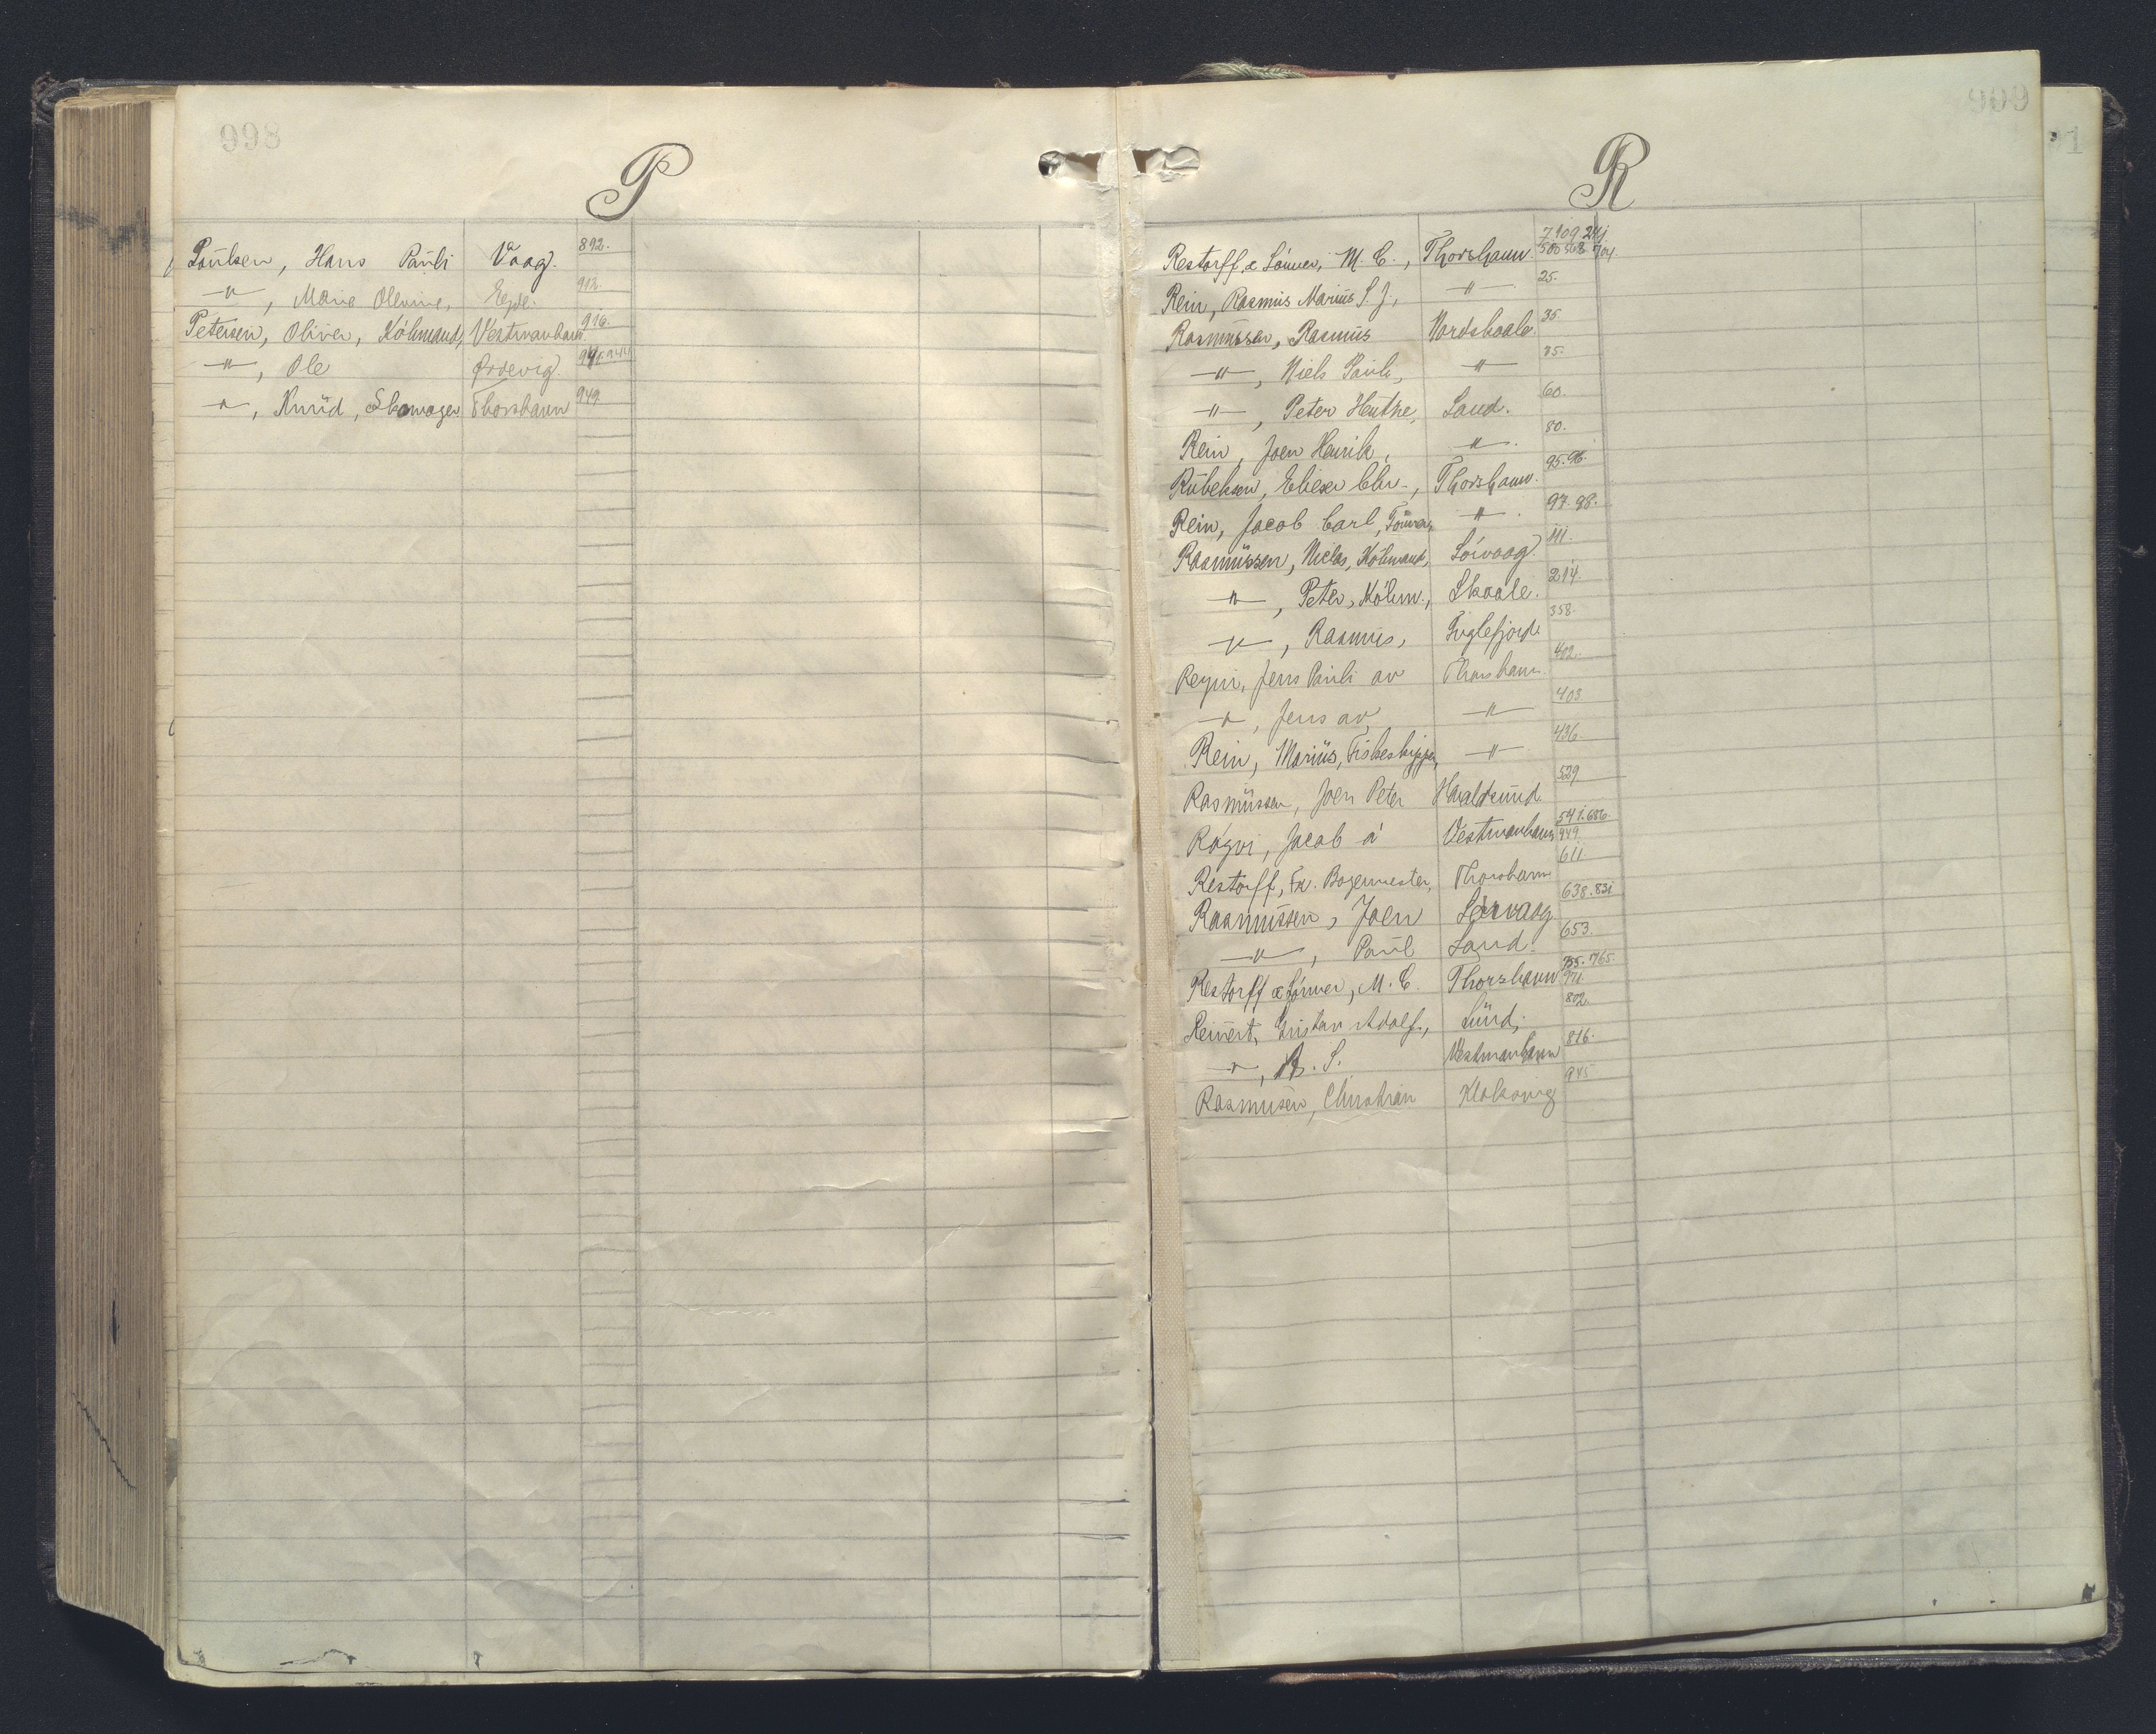 998
P
Poülsen, Hans Paüli Vaag. 892.
—"—, Marie Olevine, Ejde. 912.
Petersen, Oliver, Köbmand, Vestmanhavn. 916.
—"—, Ole Ördevig.
—"—, Knüd, Skomager Thorshavn 949.
909
R
Restorff & Sönner, M. C., Thorshavn. 7 109 241 500 568 704.
Rein, Rasmüs Mariüs S. J., —"— 25.
Rasmüssen, Rasmüs Nordskaale. 35.
—"—, Niels Paüli, —"— 35.
—"—, Peter Sand. 60.
Rein, Joen Henrik, —"—. 80.
Rübeksen, Elieser Chr., Thorshavn. 95. 96.
Rein, Jacob Carl, —"—. 97. 98.
Rasmüssen, Niclas, Köbmand, Sörvaag. 111.
—"—, Peter, Köbm., Skaale. 214.
—"—, Rasmüs, Fuglefjord. 358.
Reyni, Jens Pauli av Thorshavn. 402.
—"—, Jens av —"— 403
Rein, Mariüs, Fiskeskipper, —"—. 436.
Rasmüssen, Joen Peter Haraldsünd. 529.
Rógvi, Jacob á Vestmanhavn 541. 686. 449.
Restorff, Fr. Bagermester, Thorshavn 611.
Rasmüssen, Joen Sörvaag. 638. 831
—"—, Paül Sand. 653.
Restorff & Sönner, M. C. Thorshavn 755. 765. 971.
Reinert, Gustav Adolf., Sünd. 802.
—"—, S. Vestmanhavn 816.
Rasmusen, Christian Klaksvig 945
91